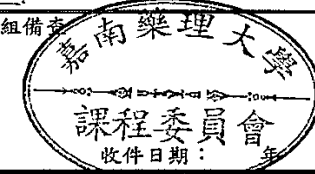 組備查
嘉南藥理大學
課程委員會
收件日期： 年